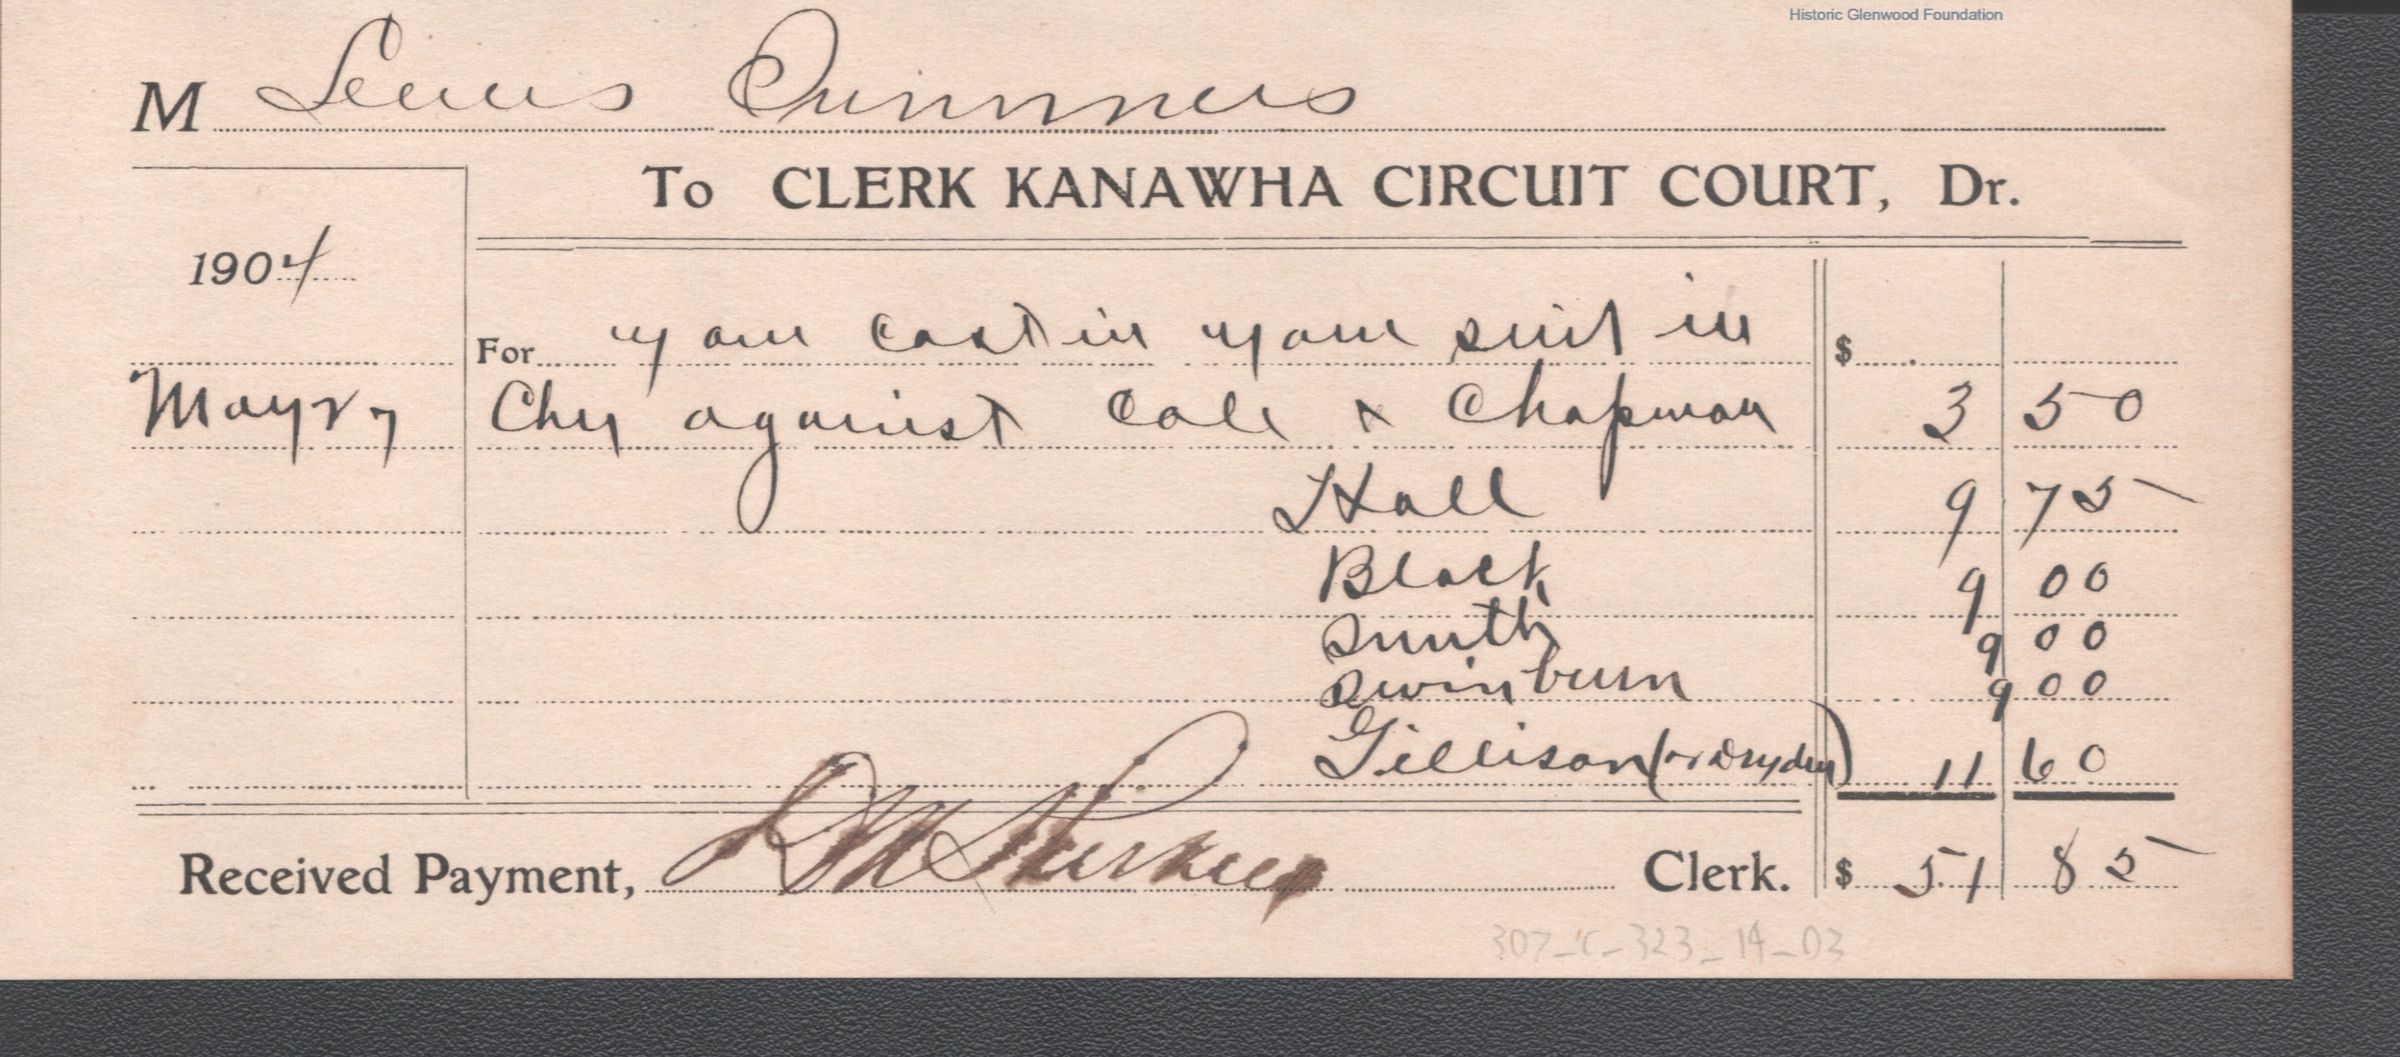 Historic Glenwood Foundation
M Lewis Quinnmers
To CLERK KANAWHA CIRCUIT COURT, Dr.
1904
For your cost in your suit in $
May 27 Chy against Cole & Chapman 3 50
Hall 9 75
Black 9 00
Smith 9 00
Swinburn 9 00
Gillison (& Dryden) 11 60
Received Payment, Clerk. $ 51 85
307-C-323-14-03